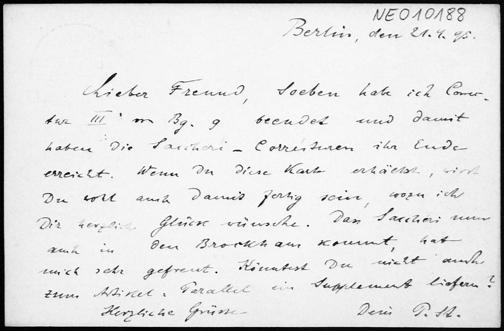 NEO10188
Berlin, den 21.4.95.
Lieber Freund, soeben habe ich Correc-
tur III von Bg. 9 beendet und damit
haben die Saccheri-Correcturen ihr Ende
erreicht. Wenn Du diese Karte erhältst, wirst
Du wohl auch damit fertig sein, wozu ich
Dir herzlich Glück wünsche. Dass Saccheri nun
auch in den Brockhaus kommt, hat
mich sehr gefreut. Könntest Du nicht auch
zum Artikel: Parallel ein Supplement liefern?
Herzliche Grüsse Dein P. St.